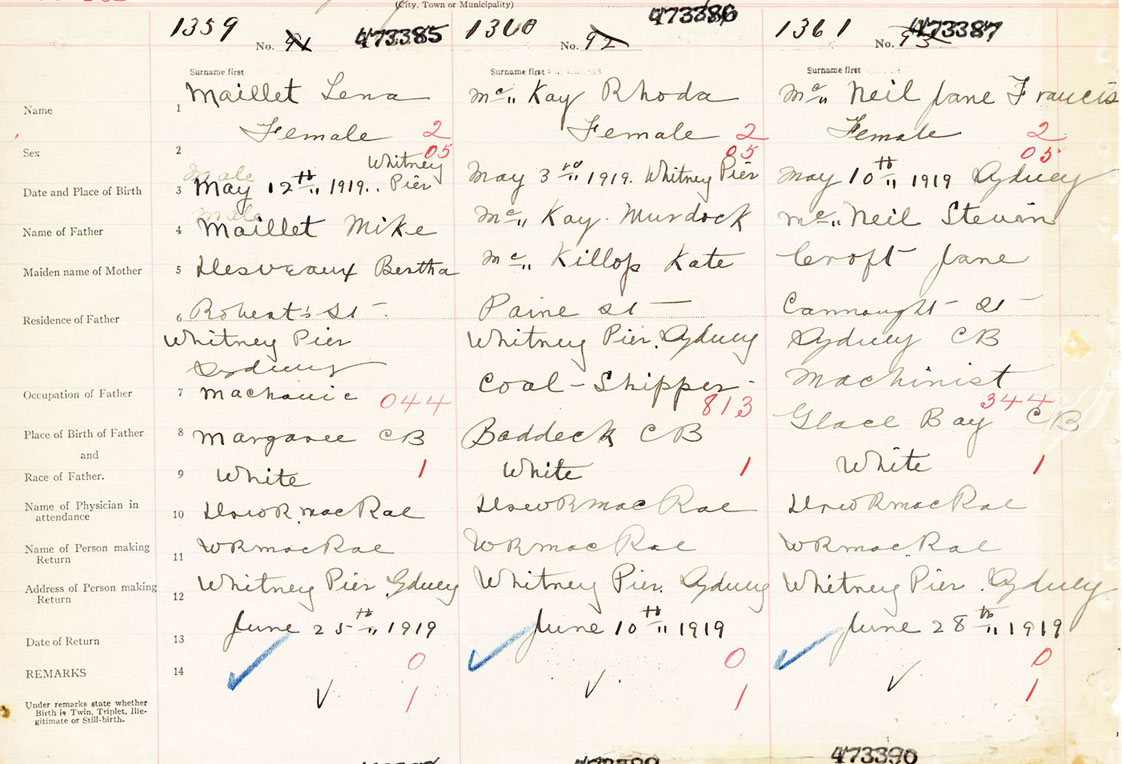 (City, Town or Municipality)
1359 No. 91 473385
1360 No. 92 473386
1361 No. 93 473387
Surname first Surname first Surname first
Name 1 Maillet Lena Mc" Kay Rhoda Mc" Neil Jane Francis
Sex 2 Female 2 Female 2 Female 2
05 05 05
Date and Place of Birth 3 May 12th" 1919. Whitney Pier May 3rd" 1919. Whitney Pier May 10th" 1919 Sydney
male
Name of Father 4 Maillet Mike Mc" Kay. Murdock Mc" Neil Steven
Maiden name of Mother 5 Desveaux Bertha Mc" Killop Kate Croft Jane
Residence of Father 6 Robert's St Paine St Connought St
Whitney Pier Whitney Pier. Sydney Sydney CB
Sydney
Occupation of Father 7 Machanic 044 Coal-Shipper 813 Machinist 344
Place of Birth of Father 8 Margaree CB Baddeck CB Glace Bay CB
and
Race of Father. 9 White 1 White 1 White 1
Name of Physician in
attendance 10 MacRae MacRae MacRae
Name of Person making
Return 11 WRMacRae WRMacRae WRMacRae
Address of Person making
Return 12 Whitney Pier Sydney Whitney Pier. Sydney Whitney Pier. Sydney
Date of Return 13 June 25th" 1919 June 10th" 1919 June 28th" 1919
REMARKS 14 0 0 0
Under remarks state whether
Birth is Twin, Triplet, Ille-
gitimate or Still-birth.
1 1 1
473390